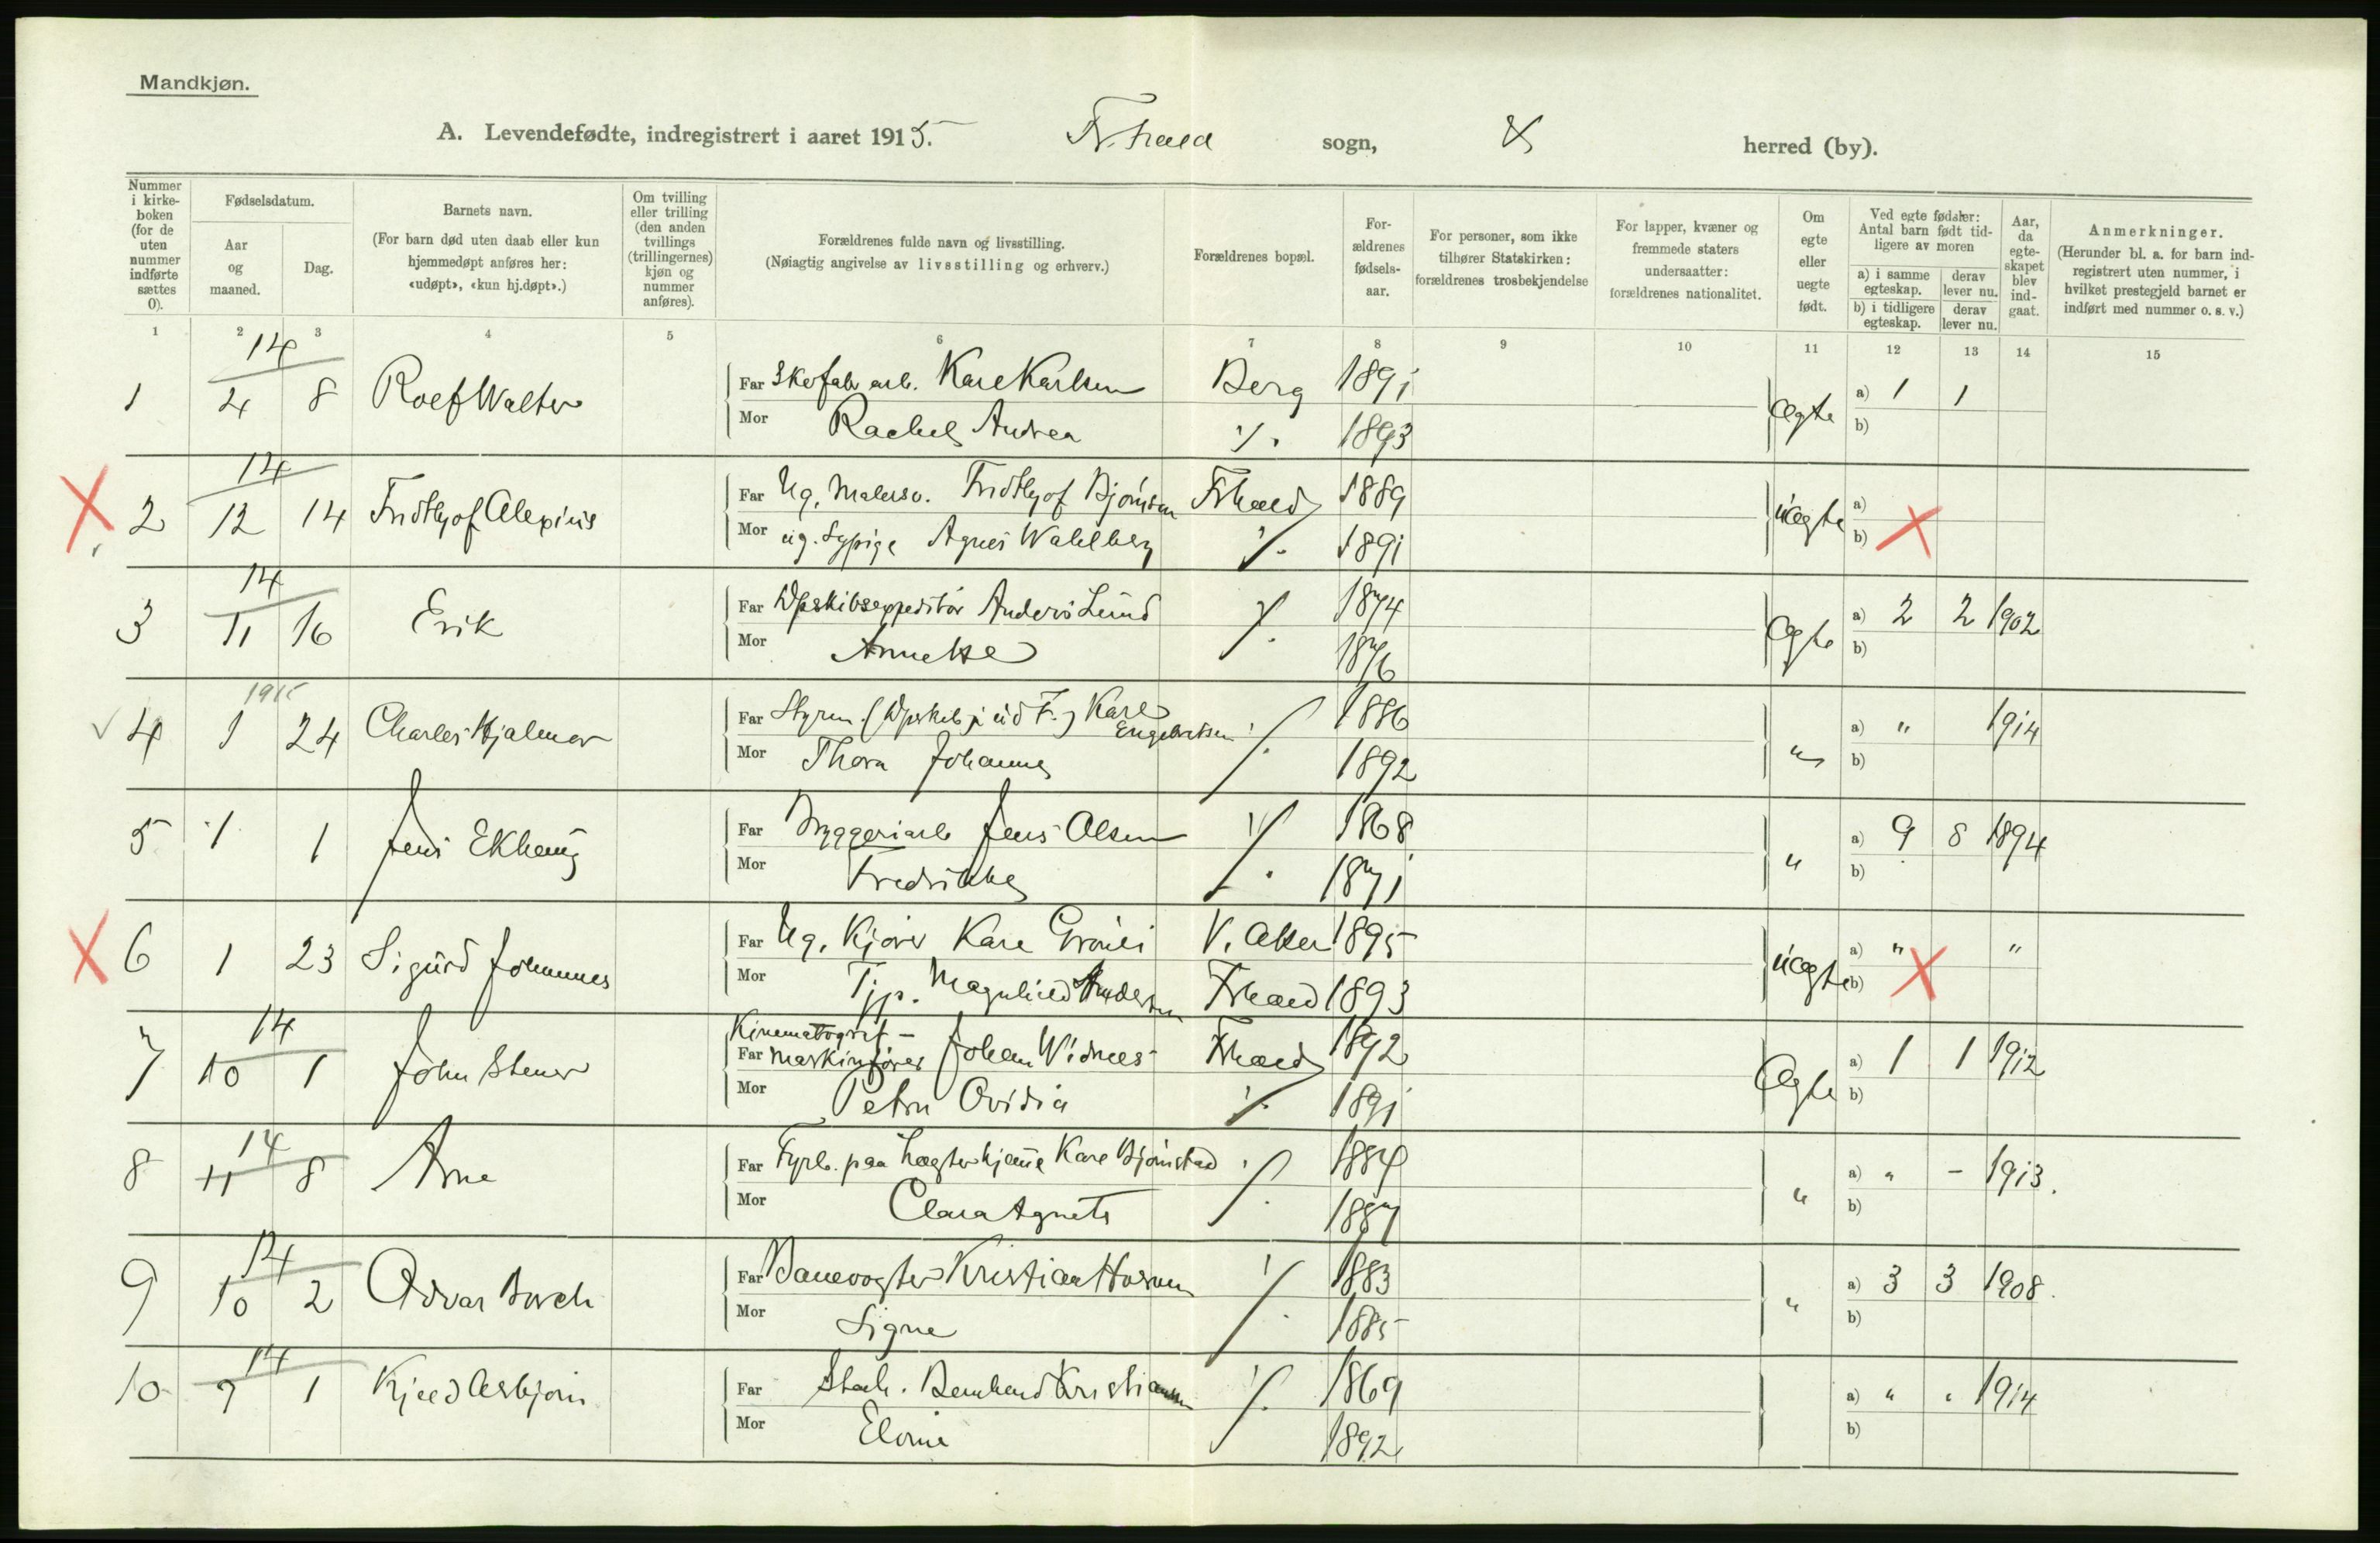 Mandkjøn.
A. Levendefødte, indregistrert i aaret 1915. Fr.hald sogn, herred (by).
Nummer i kirke-boken (for de uten nummer indførte sættes 0).
Fødselsdatum.
Aar og maaned.
Dag.
Barnets navn.
(For barn død uten daab eller kun hjemmedøpt anføres her: «udøpt», «kun hj.døpt».)
Om tvilling eller trilling (den anden tvillings (trillingernes) kjøn og nummer anføres).
Forældrenes fulde navn og livsstilling.
(Nøiagtig angivelse av livsstilling og erhverv.)
Forældrenes bopæl.
For-ældrenes fødsels-aar.
For personer, som ikke tilhører Statskirken: forældrenes trosbekjendelse
For lapper, kvæner og fremmede staters undersaatter: forældrenes nationalitet.
Om egte eller uegte født.
Ved egte fødsler: Antal barn født tid-ligere av moren
a) i samme egteskap. derav lever nu.
b) i tidligere egteskap. derav lever nu.
Aar, da egte-skapet blev ind-gaat.
Anmerkninger.
(Herunder bl. a. for barn ind-registrert uten nummer, i hvilket prestegjeld barnet er indført med nummer o. s. v.)
1 2 3 4 5 6 7 8 9 10 11 12 13 14 15
14
1 4 8 Rolf Walter Far Skofabr arb. Karl Karlsen Berg 1891 Ægte a) 1 1
Mor Rachel Andrea 1893 b)
14
2 12 14 Fridthjof Alexius Far Ug. Malersv. Fridthjof Bjørnsen Frhald 1889 uægte a)
Mor ug. Sypige Agnes Wahlberg 1891 b)
14
3 11 16 Erik Far Dpskibsexpeditør Anders Lund 1874 Ægte a) 2 2 1902
Mor Annette 1876 b)
1915
4 1 24 Charles Hjalmar Far Styrm. (Dpskib i ud F.) Karl Engebretsen 1886 " a) " 1914
Mor Thora Johanne 1892 b)
5 1 1 Jens Ekhaug Far Bryggeriarb Jens Olsen 1868 " a) 9 8 1894
Mor Fredrikke 1871 b)
6 1 23 Sigurd Johannes Far Ug. Kjører Karl V. Aker 1895 uægte a) " "
Mor Tjp. Magnhild Andersen Frhald 1893 b)
14
Kinematograf-
7 10 1 John Stener Far maskinfører Johan Widnes Frhald 1892 Ægte a) 1 1 1912
Mor Petra Ovidia 1891 b)
14
8 11 8 Arne Far Fyrb. paa Lægterhjem Karl Bjørnstad 1884 " a) " - 1913.
Mor Clara Agnete 1887 b)
14
9 10 2 Odvar Borch Far Banevogter Kristian 1883 " a) 3 3 1908.
Mor Signe 1885 b)
14
10 9 1 Kjeld Asbjørn Far Stenh. Bernhard Kristiansen 1869 a) " " 1914
Mor 1892 b)